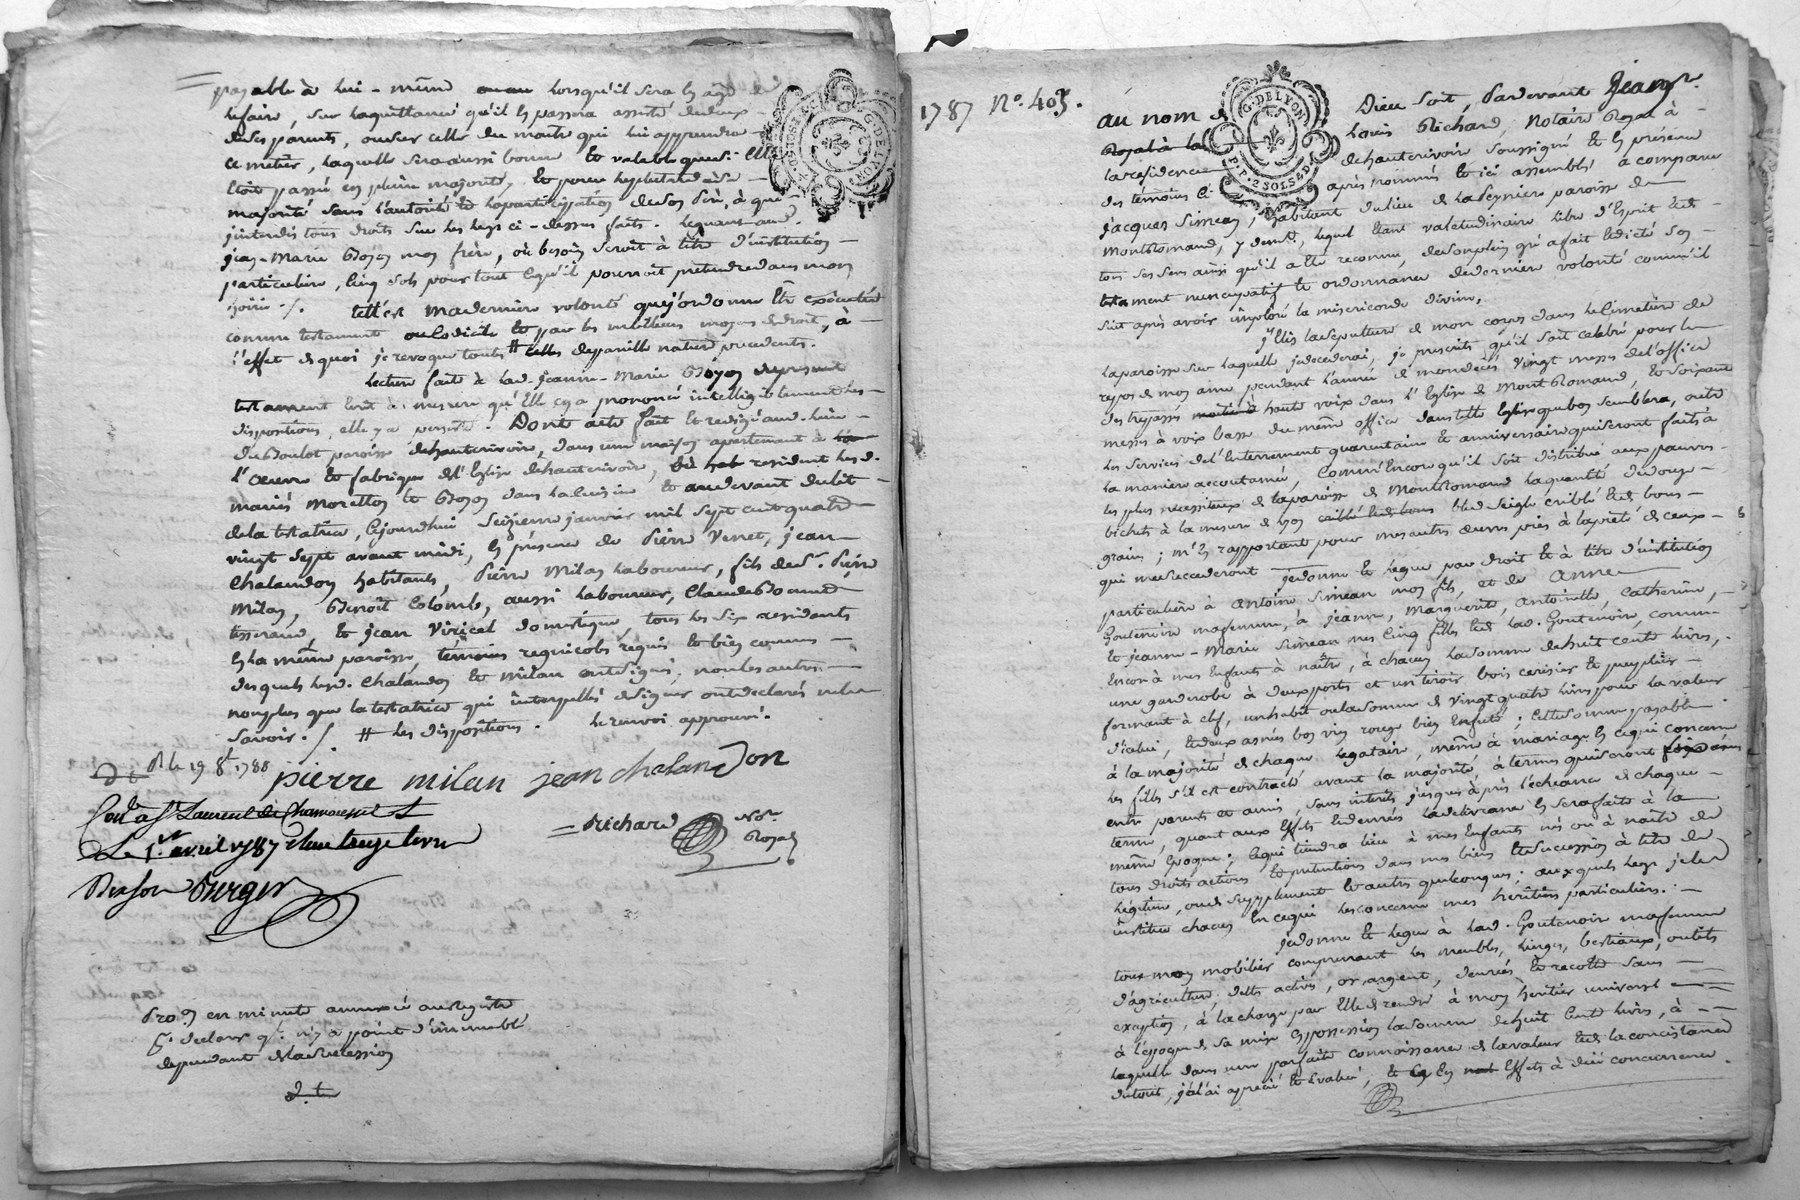 payable à lui-même lorsqu'il sera en age de
le faire, sur la quittance qu'il en passera assisté de deux
de ses parents, ou sur celle du maitre qui lui apprendra
ce metier, laquelle sera aussi bonne et valable que si elle
étoit passée en pleine majorité, et pour
majorité sans l'autorité et la participation de son Père, à qui
j'interdis tous droits sur les legs ci-dessus faits. Leguant aud.
jean-Marie mon frère, où besoin seroit à titre d'institution
particulière, cinq sols pour tout ce qu'il pourroit pretendre dans mon
hoirie ./. telle est ma derniere volonté que j'ordonne être exécutée
comme testament ou codicile et par les meilleurs moyens de droit, à
l'effet de quoi je revoque toutes # celles de pareille nature precedentes.
Lecture faite à lad. jeanne-Marie du present
testament écrit à mesure qu'elle en a prononcé intelligiblement les
dispositions, elle y a persisté. Dont acte fait et redigé aud. lieu
du Boulot paroisse de hauterivoire, dans une maison apartenant à
l'œuvre et fabrique de l'Eglise de hauterivoire, où resident les d.
mariés et dans la cuisine et au devant du lit
de la testatrice, cejourdhui seizieme janvier mil sept cent quatre
vingt sept avant midi, en présence de Pierre Venet, jean
Chalandon habitants, Pierre Milan laboureur, fils de s.r Pierre
Milan, Benoit Colomb, aussi laboureur, Claude
tisserand, et jean Viricel domestique, tous les six residents
en la même paroisse, temoins requis et bien connus
desquels lesd. Chalandon et Milan ont signé, non les autres
non plus que la testatrice qui interpellés de signer ont declarés ne le
savoir ./. # les dispositions. Le renvoi approuvé.
le 19 8.e 1788
pierre milan jean chalandon
Con.lé à S.t Laurent de Chamousset
Le 1.er avril 1787 treize livres
Richard No.re Royal
Berger
en minute annexée au registre
declare q.e n'y a point d'immeuble
dependant de la succession
1787 N.o 403.
au nom de Dieu soit, Pardevant Jean
Louis Richard, Notaire Royal à
Royal à la
la residence de hauterivoire soussigné et en présence
des témoins ci après nommés et ici assemblés a comparu
jacques Simean, habitant du lieu de la Peyniere paroisse de
Montromand, y dem.t, lequel étant valetudinaire libre d'Esprit et de
tous ses sens ainsi qu'il a été reconnu, de son plein gré a fait et dicté son
testament nuncupatif et ordonnance de derniere volonté comme il
suit après avoir imploré la misericorde divine,
j'élis la sepulture de mon corps dans le cimetiere de
la paroisse sur laquelle je decederai, je prescrits qu'il soit celebré pour le
repos de mon ame pendant l'année de mon decès vingt messes de l'office
des trepassés à haute voix dans l'Eglise de Montromand, et soixante
messes à voix basse du même office dans telle Eglise que bon semblera, outre
les services de l'Enterrement quarantaine et anniversaire qui seront faits à
la maniere accoutumée, comme encore qu'il soit distribué aux pauvres
les plus necessiteux de la paroisse de Montromand la quantité de douze
bichets à la mesure de Lyon bled seigle criblé et de bons
grains; m'en rapportant pour mes autres œuvres pies à la pieté de ceux
qui me succederont je donne et legue par droit et à titre d'institution
particuliere à Antoine Simean mon fils, et de Anne
Goutenoire ma femme, à jeanne, Marguerite, Antoinette, Catherine,
et jeanne-Marie Simean mes cinq filles et de lad. Goutenoire, comme
encor à mes Enfants à naître, à chacun la somme de huit cents livres,
une garderobe à deux portes et un tiroir bois cerisier et peuplier
fermant à clef, un habit ou la somme de vingt quatre livres pour la valeur
d'icelui, et deux asnées bon vin rouge bien enfuté; cette somme payable
à la majorité de chaque legataire, même à mariage en ce qui concerne
les filles s'il est contracté avant la majorité, à termes qui seront
entre parents et amis, sans interets jusqu'après l'échéance de chaque
terme, quant aux Effets et denrées la delivrance en sera faite à la
même Epoque; ce qui tiendra lieu à mes Enfants nés ou à naître de
tous droits actions et pretentions dans mes biens et succession à titre de
légitime, ou de supplement et autres quelconques. aux quels legs je les
institue chacun en ce qui les concerne mes héritiers particuliers.
je donne et legue à lad. Goutenoire ma femme
tout mon mobilier comprenant les meubles, linges, bestiaux, outils
d'agriculture, dettes actives, or, argent, denrées et recolte sans
exception, à la charge par elle de rendre à mon heritier universel
à l'époque de sa mise en possession la somme de huit cents livres, à
laquelle dans une parfaite connoissance de la valeur et de la consistance
du tout, j'ai apprecié et évalué, et en Effets à due concurrence.